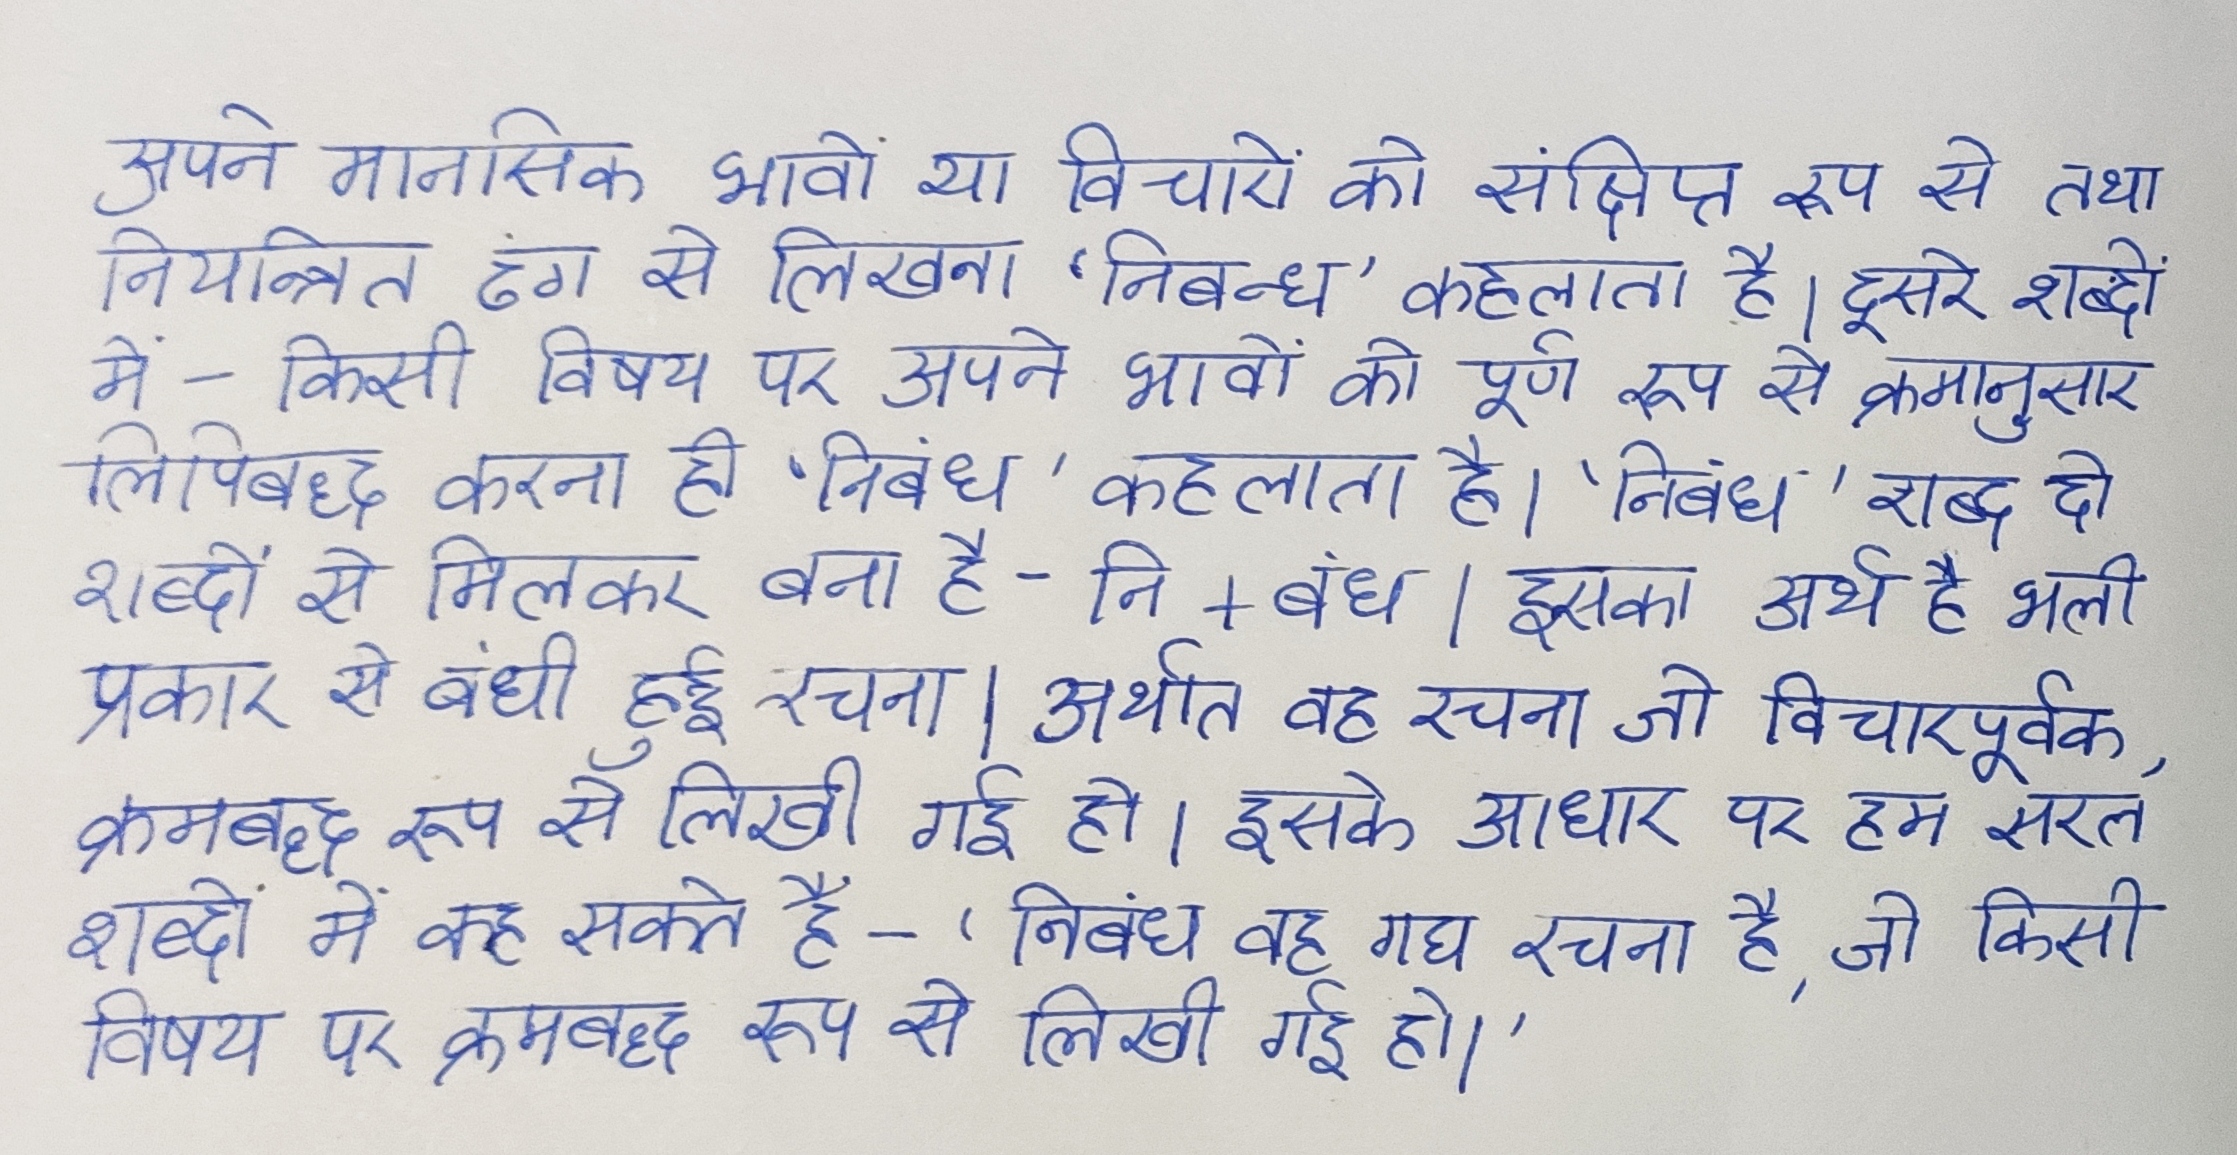 अपने मानसिक भावों या विचारों को संक्षिप्त रूप से तथा
नियन्त्रित ढंग से लिखना 'निबन्ध' कहलाता है। दूसरे शब्दों
में - किसी विषय पर अपने भावों को पूर्ण रूप से क्रमानुसार
लिपिबद्ध करना ही 'निबंध' कहलाता है। 'निबंध' शब्द दो
शब्दों से मिलकर बना है - नि + बंध। इसका अर्थ है भली
प्रकार से बंधी हुई रचना। अर्थात वह रचना जो विचारपूर्वक,
क्रमबद्ध रूप से लिखी गई हो। इसके आधार पर हम सरल
शब्दों में कह सकते हैं - 'निबंध वह गद्य रचना है, जो किसी
विषय पर क्रमबद्ध रूप से लिखी गई हो।'